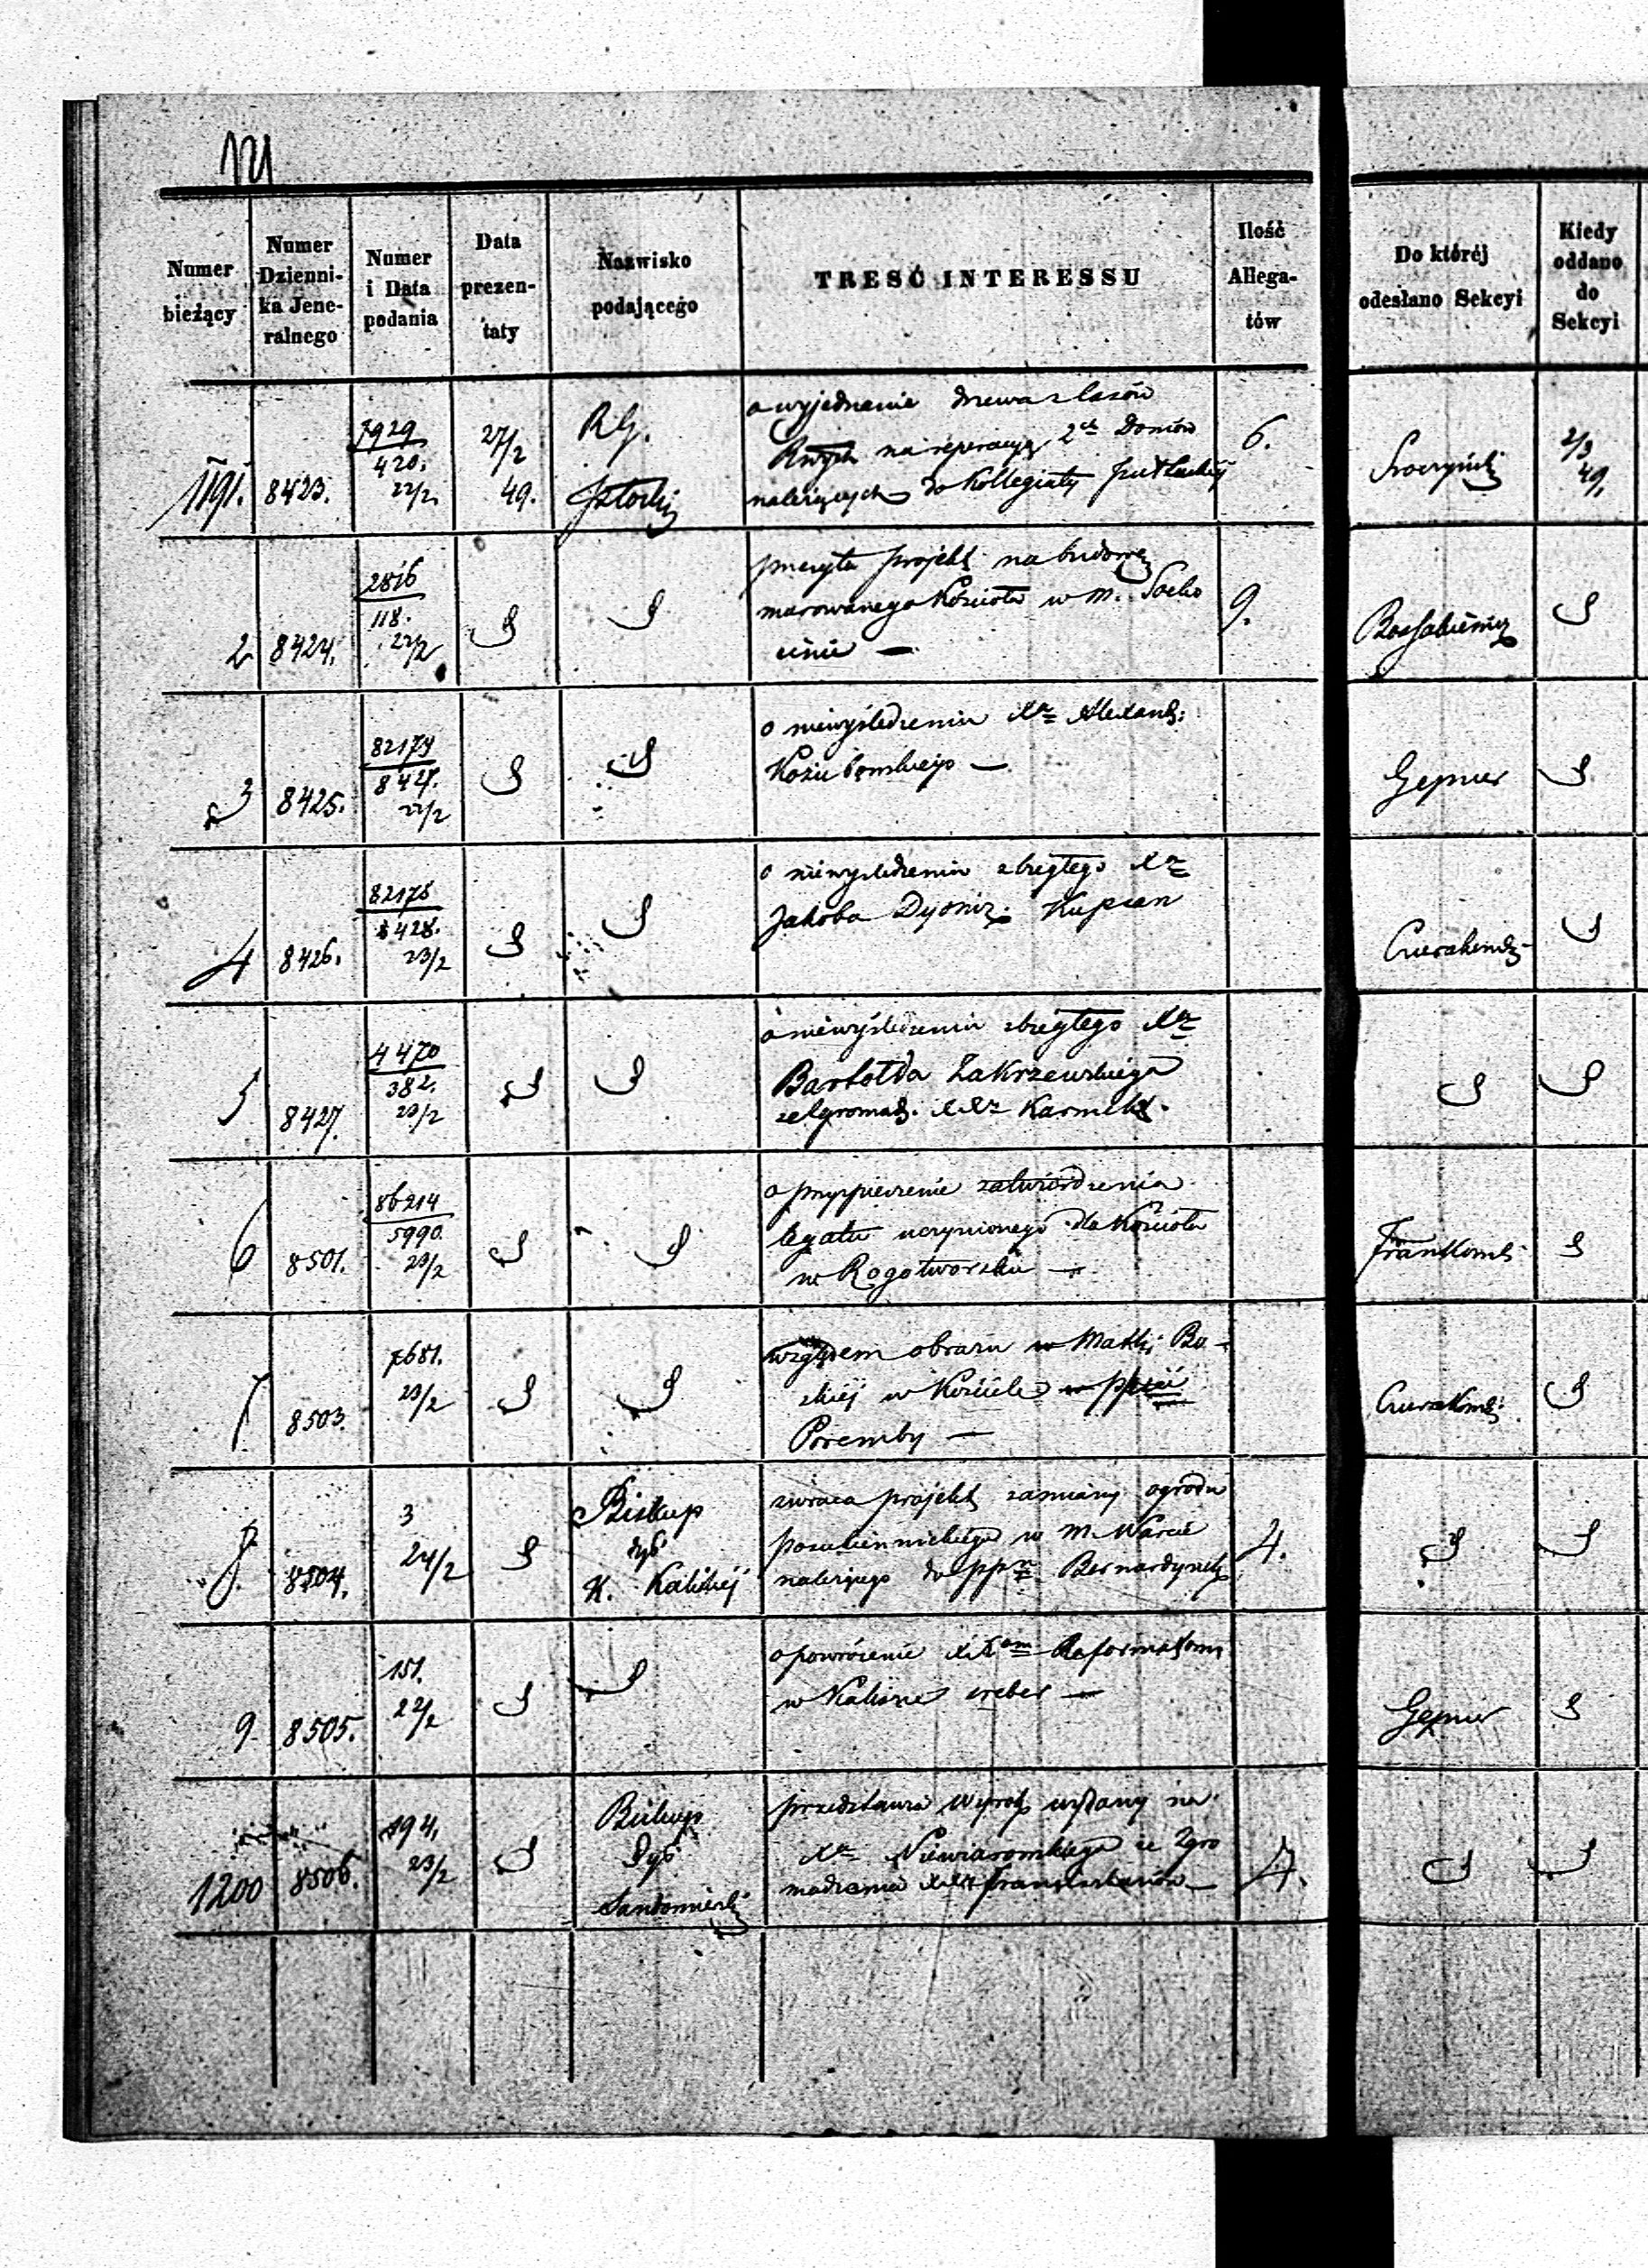 121
Numer bieżący
Numer Dzienni- ka Jene- ralnego
Numer i Data podania
Data prezen- taty
Nazwisko podającego
TRESĆ INTERESSU
Ilość Allega- tów
Do któréj odesłano Sekcyi
Kiedy oddano do Sekcyi
1191. 8423. 7929
420.
22/2
27/2
49.
R.G.
Płocki
o wyjednanie drzewa z lasów
na reperacyą 2ch Domów
należących do Kollegiaty Pułtuskiej
6.
2/3
49.
2 8424. 2816
118.
22/2
przesyła projekt na budowę
murowanego Kościoła w m. Socho
cinie —
9.
3 8425. 82179
8427.
22/2
o niewyśledzeniu Xa Alexand:
Koziebrodzkiego —
Gepner
4 8426. 82178
8428.
23/2
o niewyśledzeniu zbiegłego Xa
Jakoba Dyoniz: Kupcan
5 8427. 4470
382.
23/2
o niewyśledzeniu zbiegłego Xa
Bartołda Zakrzewskiego
ze Zgromad. XXz Karmelit.
6 8501. 86214
5990.
23/2
o przyspieszenie zatwierdzenia
legatu uczynionego dla Kościoła
w Rogotworsku —
7 8503. 7681.
23/2
względem obrazu w Matki Bo-
skiej w Kościele w
Poremby —
8. 8504. 3
24/2
Biskup
dyó
K. Kaliskiéj
zwraca projekt zamiany ogrodu
w m. Warcie
należącego do ppn Bernardynek
4.
9 8505. 151.
22/2
o powrócenie XXom Reformatom
w Kaliszu sreber —
Gepner
1200 8506. 194.
23/2
Biskup
Dyó
Sandomierski
przedstawia Wyrok wydany na
Xa Niewiarowskiego ze Zgro
madzenia XXX Franciszkanów —
4.